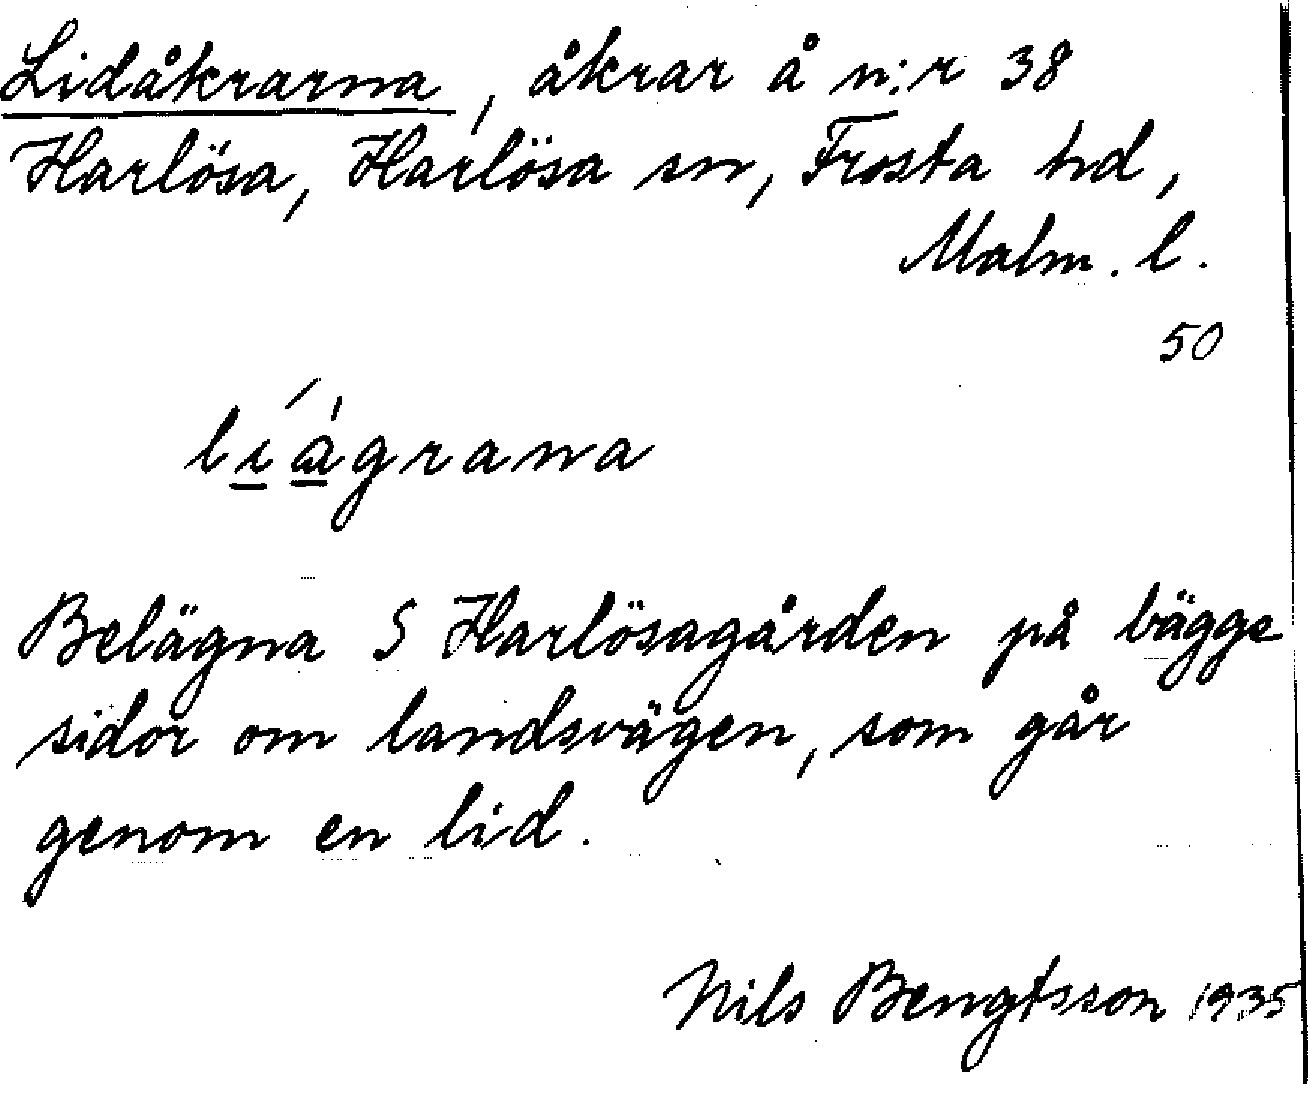 Lidåkrarna, åkrar å n:r 38
Harlösa, Harlösa sn, Frosta hd,
Malm. l.
50
líágrana
Belägna S Harlösagården på bägge
sidor om landsvägen, som går
genom en lid.
Nils Bengtsson 1935